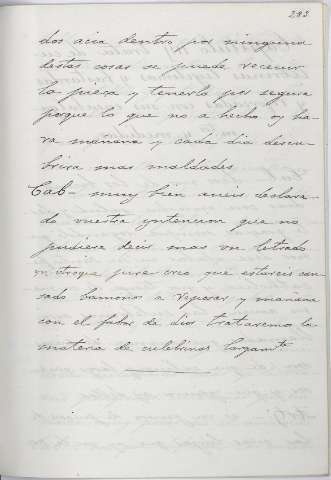 293
dos acia dentro por ninguna
destas cosas se puede recevir
la pieça y tenerla por segura
porque lo que no a hecho oy ha-
ra mañana y cada dia descu-
brira mas maldades
Cab – muy bien aueis declara-
do vuestra yntencion que no
pudiera decir mas un letrado
en utroque jure creo que estareis can-
sado bamonos a reposar y mañana
con el fabor de dios trataremos la
materia de culebrinas largamte